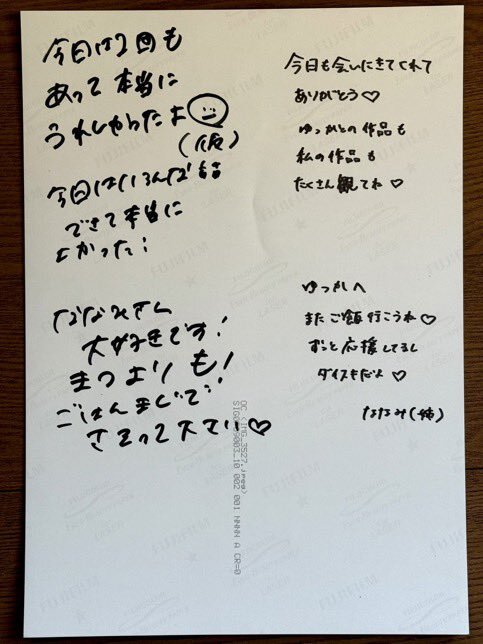 今日は2回も
あって本当に
うれしかったよ
(仮)
今日はいろんな話
できて本当に
よかった!
ななみさん
大好きです!
まつよりも!
ごはんまじで!
さそって下さい♡
今日も会いにきてくれて
ありがとう♡
ゆっかとの作品も
私の作品も
たくさん観てね♡
ゆっかへ
またご飯行こうね♡
ずっと応援してるし
ダイスキだよ♡
ななみ(姉)
FUJIFILM